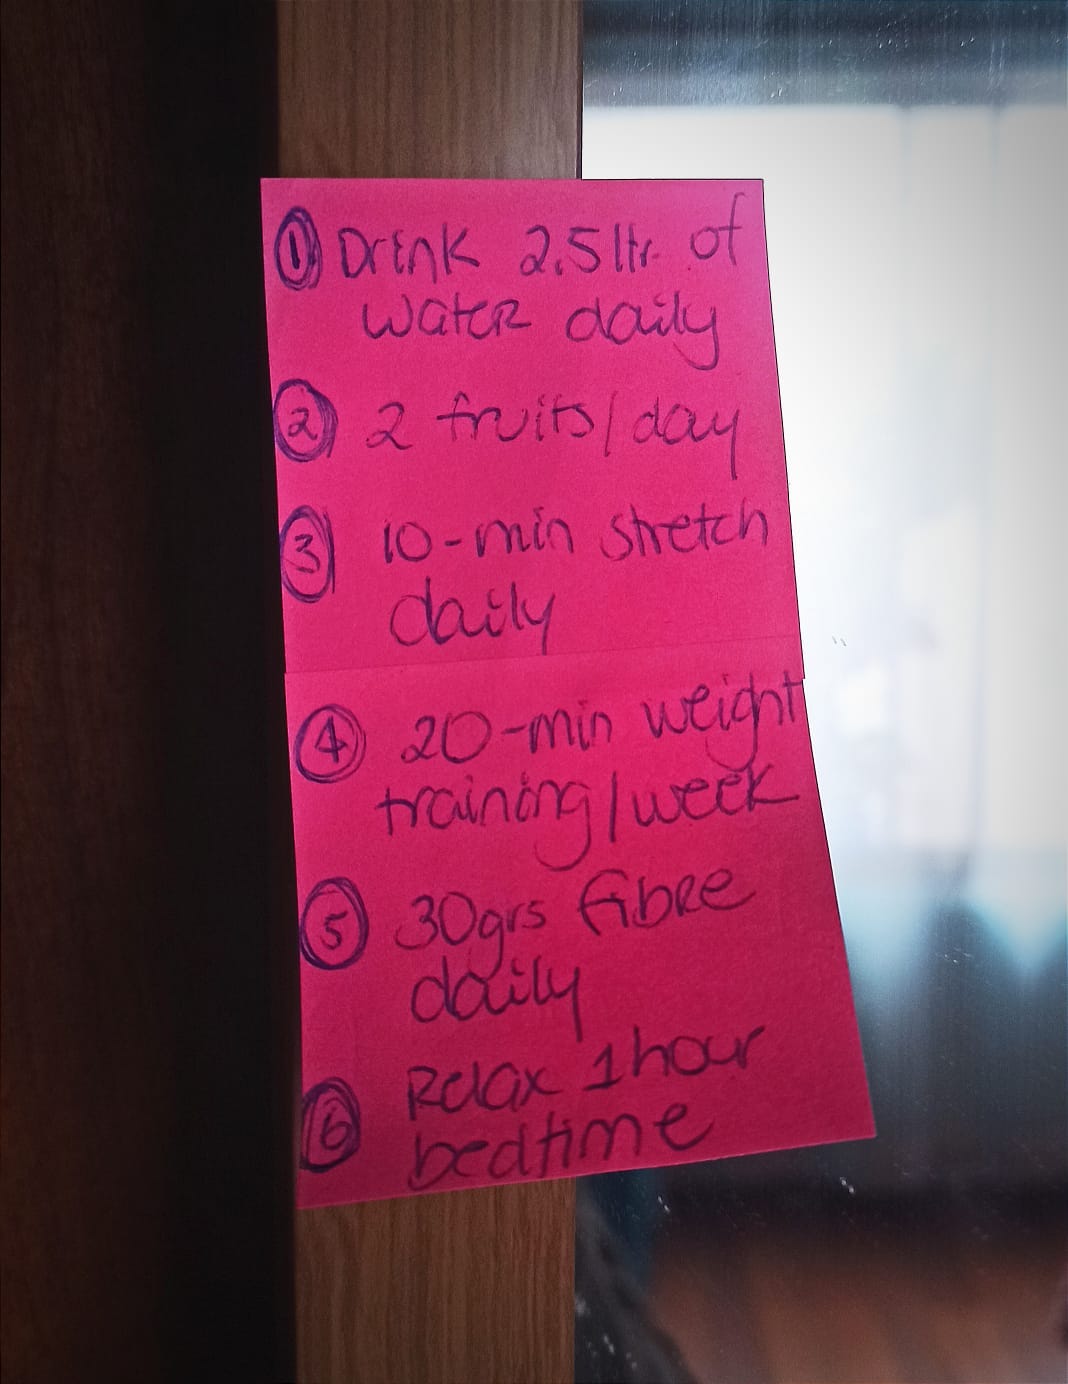 1 Drink 2.5 ltr. of
water daily
2 2 fruits/day
3 10-min stretch
daily
4 20-min weight
training/week
5 30grs fibre
daily
6 Relax 1 hour
bedtime